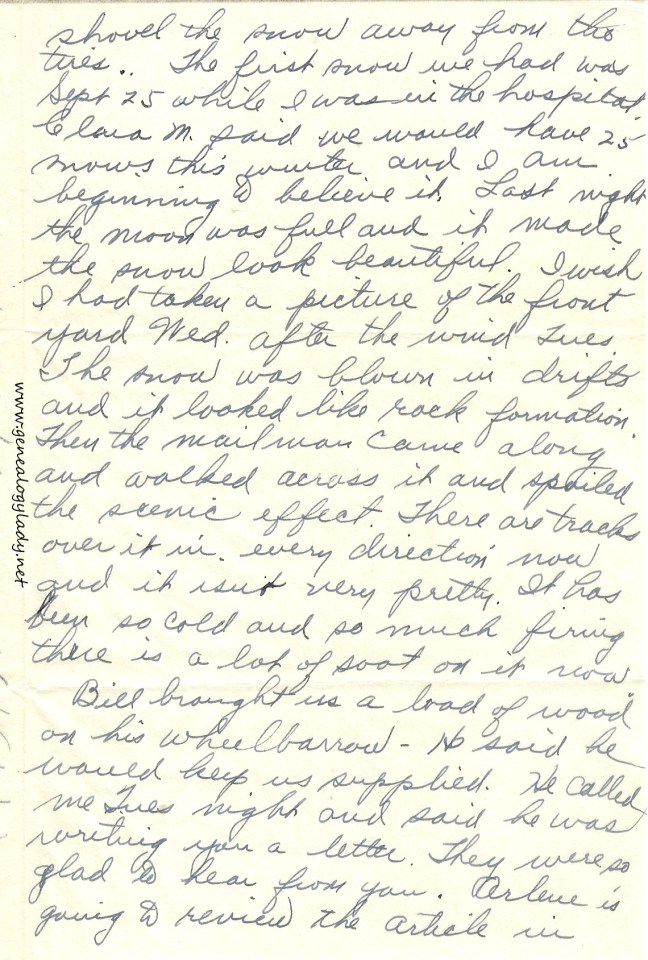 shovel the snow away from the
tires.. The first snow we had was
Sept 25 while I was in the hospital.
Clara M. said we would have 25
snows this winter and I am
beginning to believe it. Last night
the moon was full and it made
the snow look beautiful. I wish
I had taken a picture of the front
yard Wed. after the wind Tues
The snow was blown in drifts
and it looked like rock formation.
Then the mailman came along
and walked across it and spoiled
the scenic effect. There are tracks
over it in every direction now
and it isn't very pretty. It has
been so cold and so much firing
there is a lot of soot on it now
Bill brought us a load of wood
on his wheelbarrow - He said he
would keep us supplied. He called
me Tues night and said he was
writing you a letter. They were so
glad to hear from you. Arlene is
going to review the article in
www.genealogylady.net